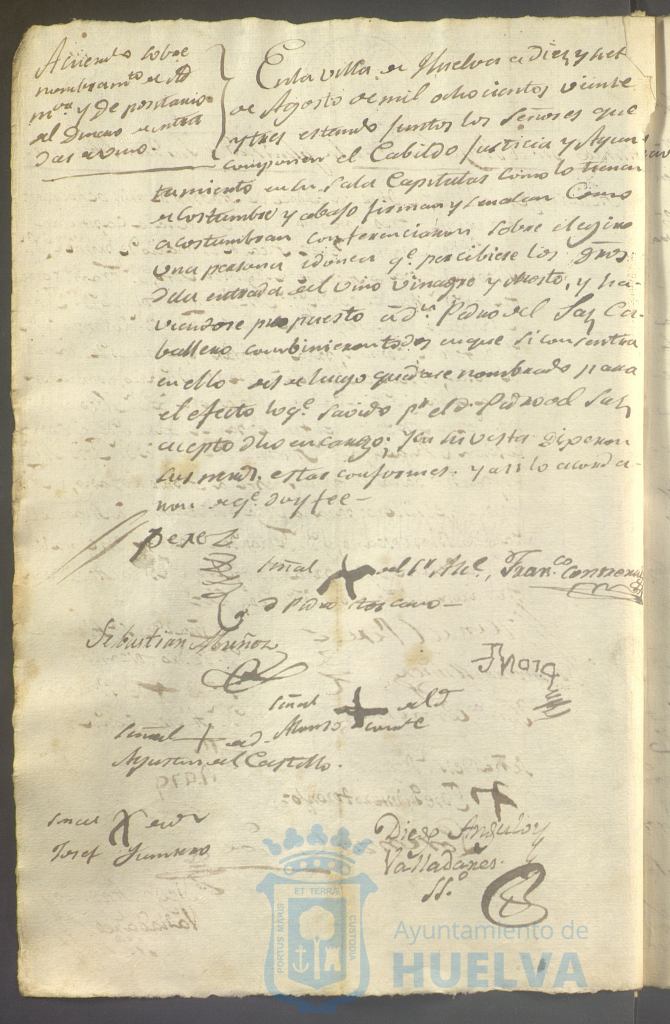 Acuerdo sobre
nombramto de Ad
mor y Depositario
del Dinero de entra
das de vino.
En la villa de Huelva a diez y siet
de Agosto de mil ochocientos veinte
y tres estando juntos los Señores que
componen el Cabildo Justicia y Ayun-
tamiento en su Sala Capitular como lo tienen
de costumbre y abajo firman y señalan como
acostumbran conferenciaron sobre elegir
una persona idonea qe. percibiese los dros
de la entrada del vino vinagre y mosto, y ha-
viendose propuesto a dn. Pedro del Saz Ca-
ballero combinieron todos en que si consentia
en ello desde luego quedase nombrado para
el efecto lo qe. savido pr el d. Pedro del Saz
acepto dho encargo; y en su vista dijeron
sus mercds. estar conformes. y asi lo acorda-
ron de qe. doy fee-
Perez
Señal + del Sr. Alc., Franco. Contreras
d Pedro Toscano-
Sebastian Muñoz
Señal + de d
Alonso
Señal + de d
Agustin del Castillo.
Señal + de dn
Josef Humero
Diego Angulo y
Valladares.
SSo.
PORTUS MARIS
ET TERRÆ
CUSTODIA
Ayuntamiento de
HUELVA